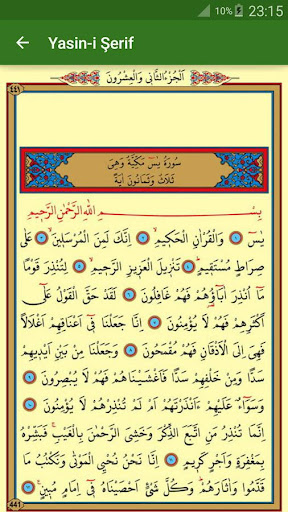 10% 23:15
Yasin-i Şerif
٤٤١ اَلْجُزْءُ الثَّانِي وَالْعِشْرُونَ
سُورَةُ يٰسٓ مَكِّيَّةٌ وَهِيَ
ثَلَاثٌ وَثَمَانُونَ اٰيَةً
بِسْمِ اللّٰهِ الرَّحْمٰنِ الرَّحِيمِ
يٰسٓ ﴿١﴾ وَالْقُرْاٰنِ الْحَكِيمِ ﴿٢﴾ اِنَّكَ لَمِنَ الْمُرْسَلِينَ ﴿٣﴾ عَلٰى
صِرَاطٍ مُسْتَقِيمٍ ﴿٤﴾ تَنْزِيلَ الْعَزِيزِ الرَّحِيمِ ﴿٥﴾ لِتُنْذِرَ قَوْمًا
مَٓا اُنْذِرَ اٰبَٓاؤُ۬هُمْ فَهُمْ غَافِلُونَ ﴿٦﴾ لَقَدْ حَقَّ الْقَوْلُ عَلٰٓى
اَكْثَرِهِمْ فَهُمْ لَا يُؤْمِنُونَ ﴿٧﴾ اِنَّا جَعَلْنَا ف۪ٓي اَعْنَاقِهِمْ اَغْلَالًا
فَهِيَ اِلَى الْاَذْقَانِ فَهُمْ مُقْمَحُونَ ﴿٨﴾ وَجَعَلْنَا مِنْ بَيْنِ اَيْد۪يهِمْ
سَدًّا وَمِنْ خَلْفِهِمْ سَدًّا فَاَغْشَيْنَاهُمْ فَهُمْ لَا يُبْصِرُونَ ﴿٩﴾
وَسَوَٓاءٌ عَلَيْهِمْ ءَاَنْذَرْتَهُمْ اَمْ لَمْ تُنْذِرْهُمْ لَا يُؤْمِنُونَ ﴿١٠﴾
اِنَّمَا تُنْذِرُ مَنِ اتَّبَعَ الذِّكْرَ وَخَشِيَ الرَّحْمٰنَ بِالْغَيْبِۚ فَبَشِّرْهُ
بِمَغْفِرَةٍ وَاَجْرٍ كَر۪يمٍ ﴿١١﴾ اِنَّا نَحْنُ نُحْيِ الْمَوْتٰى وَنَكْتُبُ مَا
قَدَّمُوا وَاٰثَارَهُمْۜ وَكُلَّ شَيْءٍ اَحْصَيْنَاهُ ف۪ٓي اِمَامٍ مُب۪ينٍ ﴿١٢﴾
441